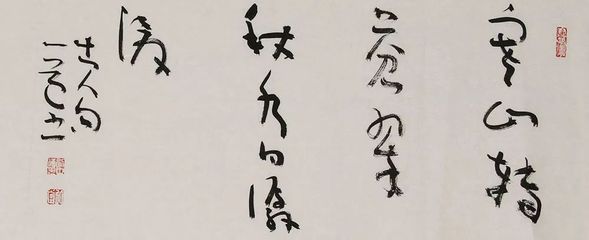 寒山轉
蒼翠
秋水日潺
湲
古人句
一书